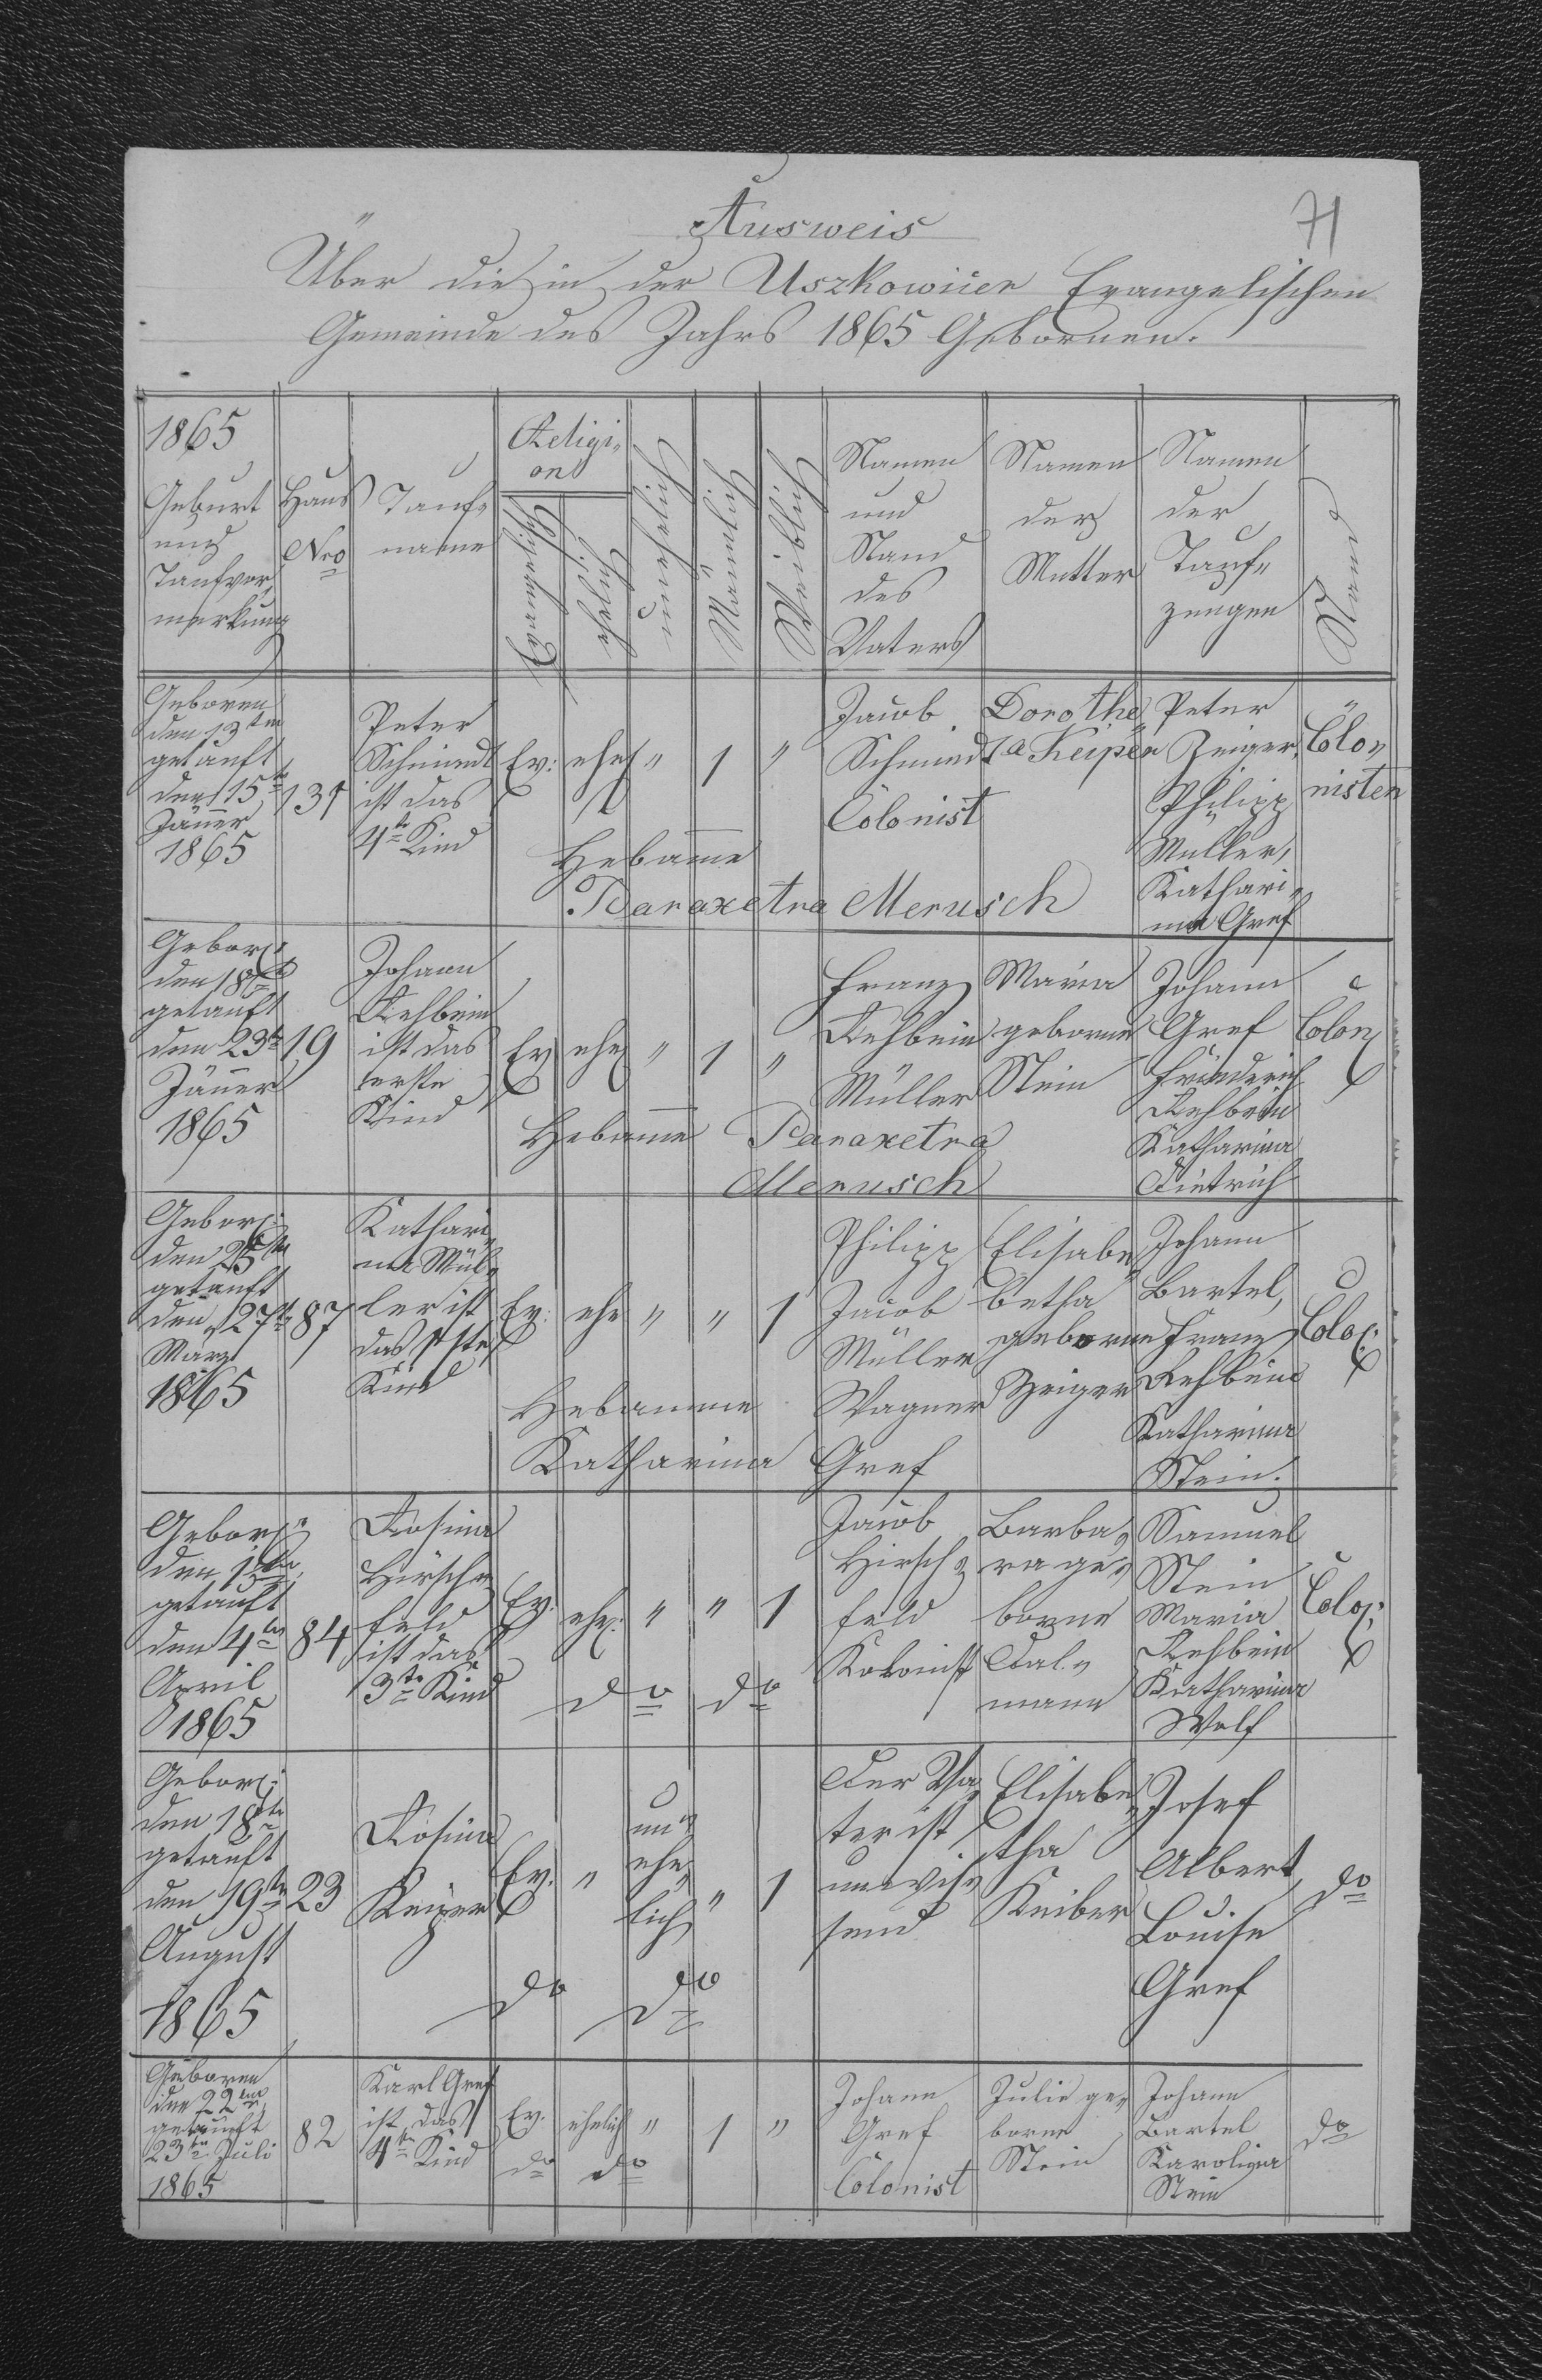 71
Ausweis
Über die in der Uszkowicer Evangelischen
Gemeinde des Jahrs 1865 Gebornen.
1865
Geburt
und
Taufvor,
merkung
Haus
Nro
Tauf-
name
Religi-
on
Evangelisch
ehelich
unehelich
Mänlich
Weiblich
Namen
und
Stand
des
Vaters
Namen
der
Mutter
Namen
der
Tauf-
zeugen
Stand
Geboren
den 13ten
getauft
den 15te
Jäner
1865
131
Peter
Schmiedt
ist das
4te Kind
Ev:
ehe
"
1
"
Jacob
Schmiedt
Colonist
Dorothe,
a Keiper
Peter
Zeiger,
Philipp
Müller,
Kathari-
na Gref
Colo,
nisten
Hebame
Paraxetra Merusch
Gebor:
den 18t
getauft
den 23te
Jäner
1865
19
Johann
Rehbein
ist das
erste
Kind
Ev
ehe
"
1
"
Franz
Rehbein
Müller
Maria
geborne
Stein
Johann
Gref
Friederich
Rehbein
Katharina
Dietrich
Colon
Hebame Paraxetra
Merusch
Gebor:
den 25te
getauft
den 27t
März
1865
87
Kathari,
na Mül,
ler ist
das 1ste
Kind
Ev:
ehe
"
"
1
Philipp
Jacob
Müller
Wagner
Elisabe,
betha
geborne
Zeiger
Johann
Bartel,
Franz
Rehbein
Katharina
Stein.
Colo:
Hebamme
Katharina Gref
Gebor:
den 1ten
getauft
den 4ten
April
1865
84
Rosina
Hirsch,
feld
ist das
3te Kind
Ev.
ehe:
"
"
1
Jacob
Hirsch,
feld
Kolonist
Barba,
ra ge,
borne
Dal,
mann
Samuel
Stein
Maria
Rehbein
Katharina
Wolf
Colo:
do do
Gebor:
den 18te
getauft
den 19te
August
1865
23
Rosina
Keiper
Ev.
"
un,
ehe,
lich
"
1
Der Va,
ter ist
unwis,
send
Elisabe,
tha
Keiber
Josef
Albert,
Louise
Gref
do
do do
Geboren
den 22ten
getauft
23te Juli
1865
82
Karl Gref
ist das
4te Kind
Ev.
ehelich
"
1
"
Johann
Gref
Colonist
Julie ge,
borne
Stein
Johann
Bartel
Karolina
Stein
do
do do